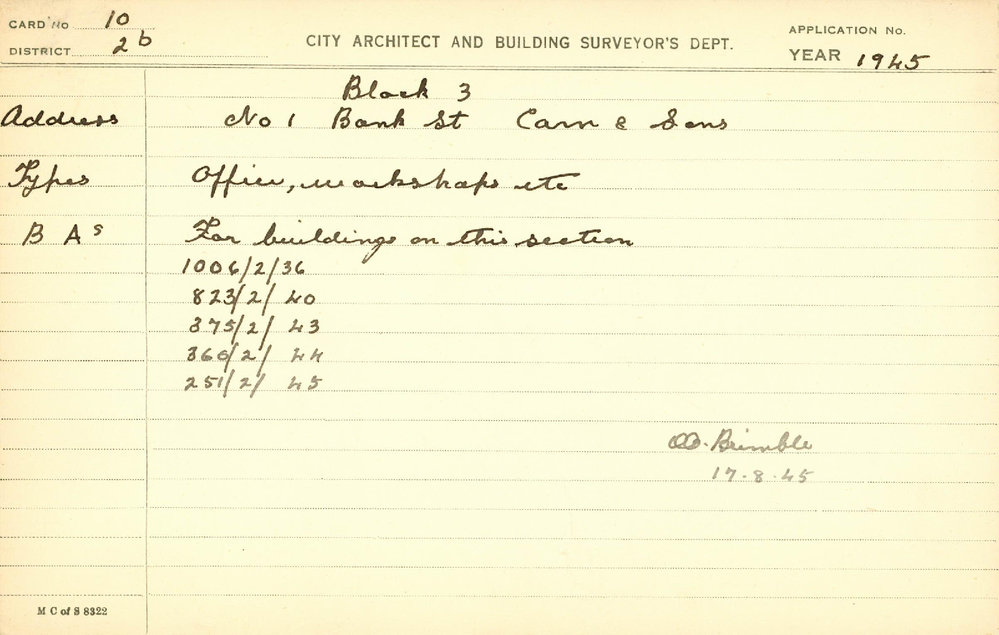 CARD No 10
DISTRICT 2b
CITY ARCHITECT AND BUILDING SURVEYOR'S DEPT.
APPLICATION No.
YEAR 1945
Block 3
Address No 1 Bank St Carn & Sons
Types Office, workshops etc
B As For buildings on this section
1006/2/36
823/2/40
375/2/43
360/2/44
251/2/45
Brimble
17.8.45
M C of S 8322